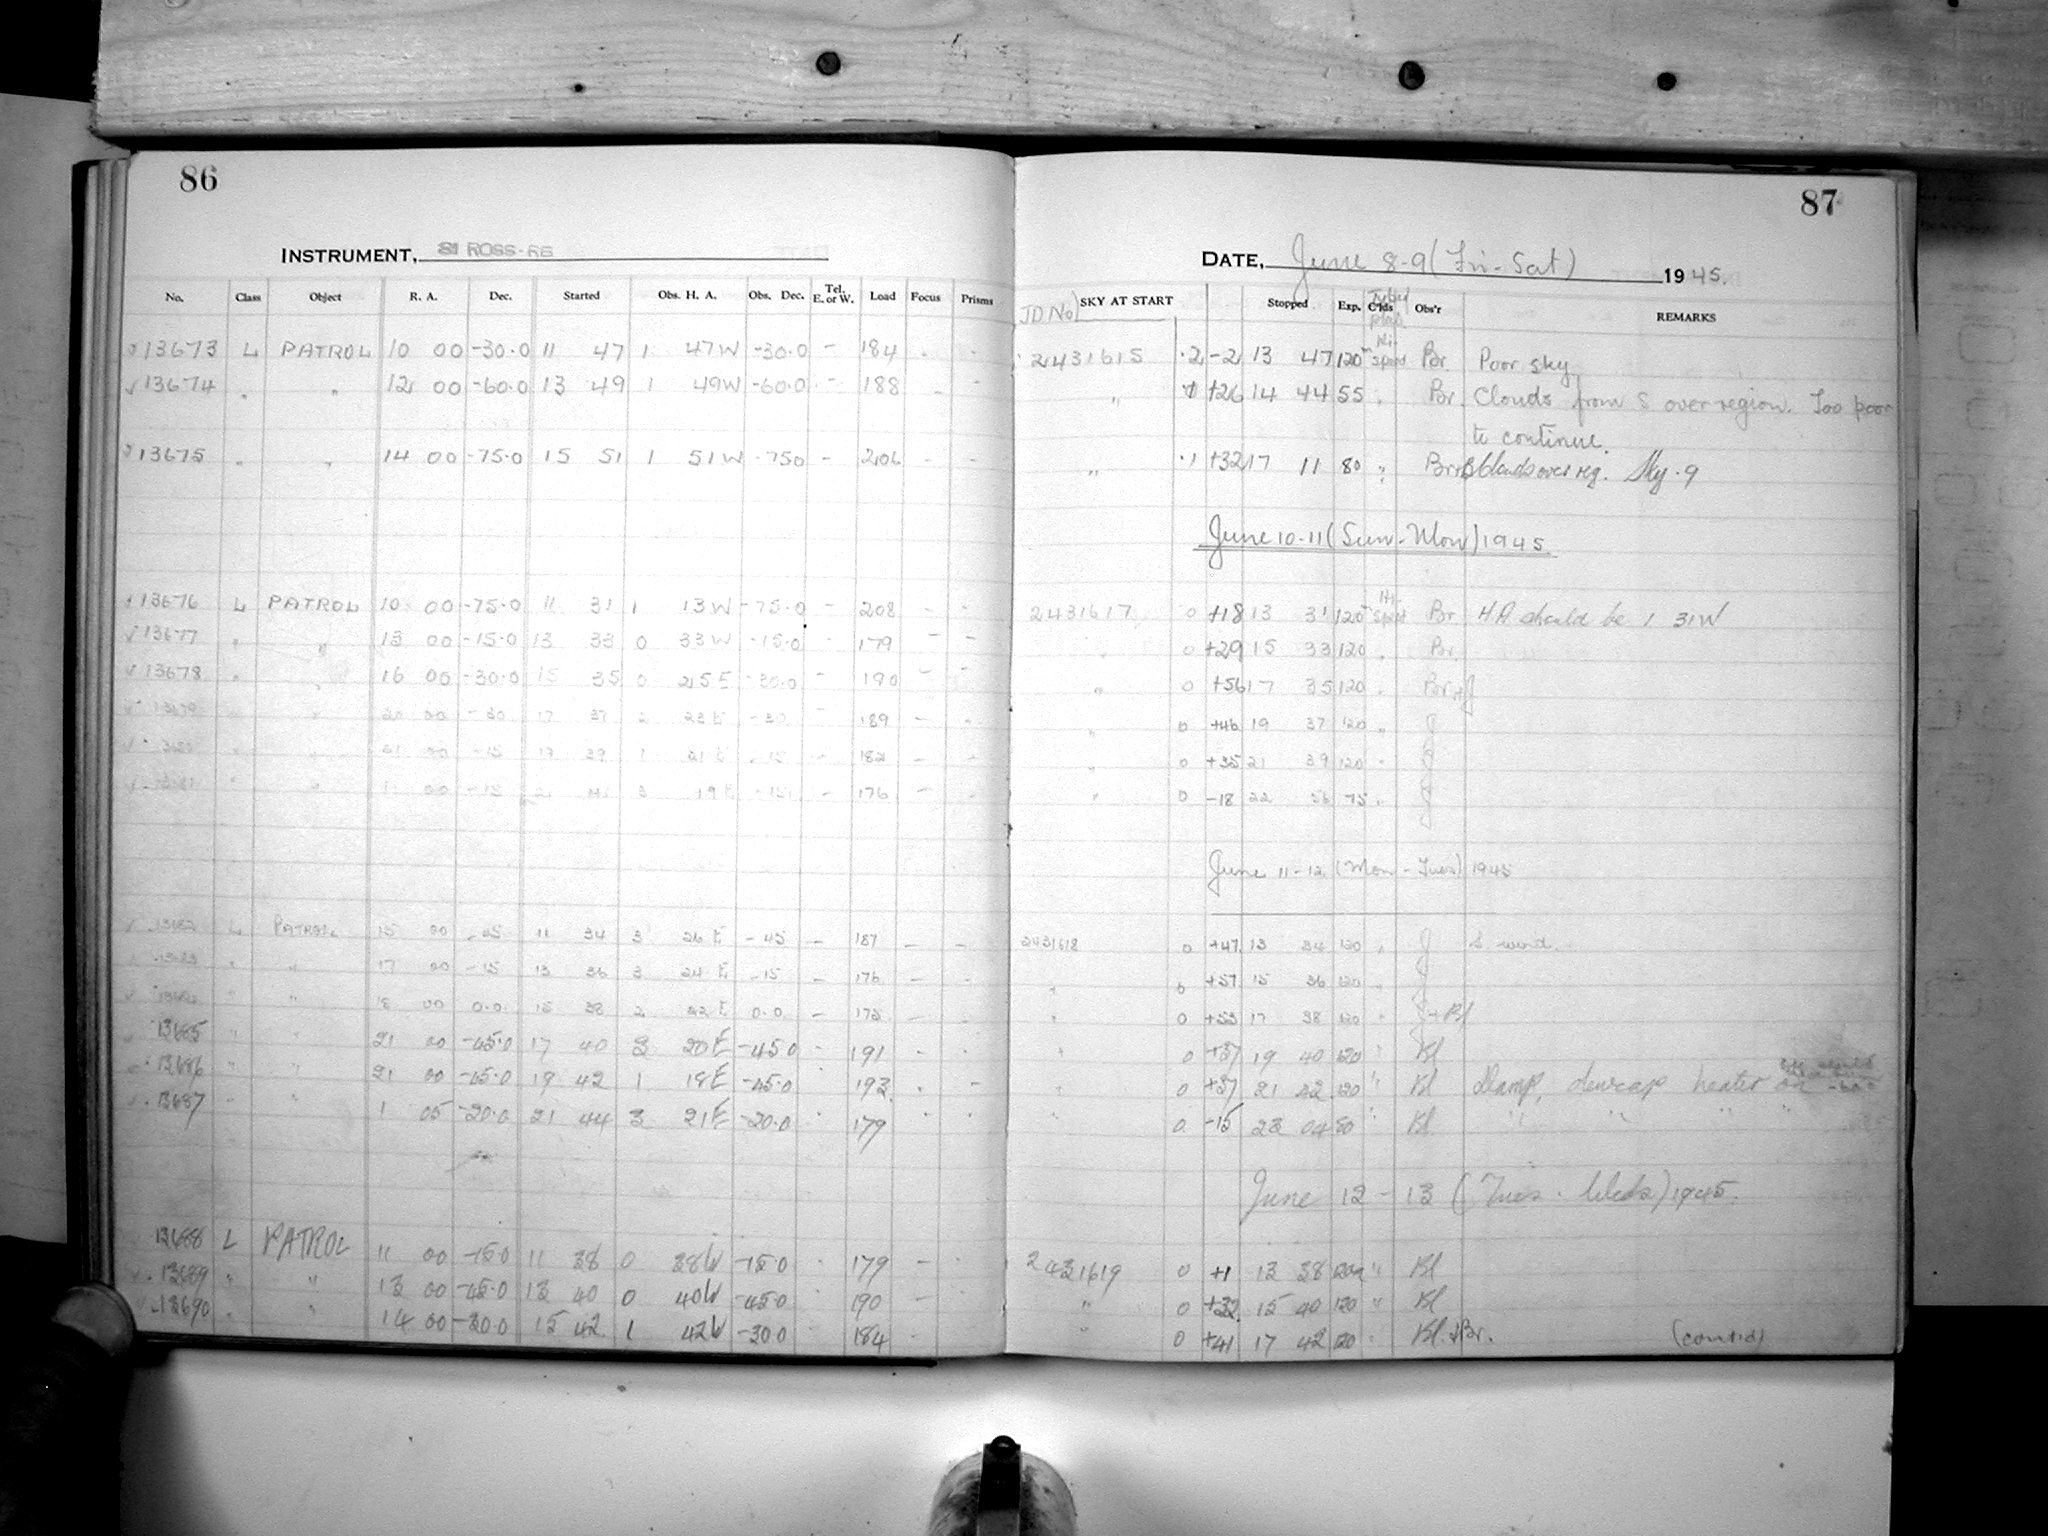 86
INSTRUMENT, ROSS-
No. Class Object R. A. Dec. Started Obs. H. A. Obs. Dec. Tel. E. or W. Load Focus Prisms
13673 L PATROL 10 00 -30.0 11 47 1 47W -30.0 - 184
13674 " " 12 00 -60.0 13 49 1 49W -60.0 - 188
13675 " " 14 00 -75.0 15 51 1 51W -750 - 206 - -
13676 L PATROL 10 00 -75.0 11 31 1 13W -75.0 - 208 - -
13677 " " 13 00 -15.0 13 33 0 33W -15.0 - 179 - -
13678 " " 16 00 -30.0 15 35 0 25E -30.0 - 190 - -
13679 " " 20 00 -30 17 37 2 23E -30 - 189 - -
" " 21 00 -15 19 39 1 21E -15 - 182 - -
" " 00 -15 3 19E -15 - 176 - -
13682 L PATROL 15 00 -45 11 34 3 26E -45 - 187 - -
13683 " " 17 00 -15 13 36 3 24E -15 - 176 - -
" " 18 00 0.0 15 38 2 22E 0.0 - 175 - -
13685 " " 21 00 -45.0 17 40 3 20E -45.0 191
13686 " " 21 00 -45.0 19 42 1 18E -45.0 193 -
13687 1 05 -20.0 21 44 3 21E -20.0 179
13688 L PATROL 11 00 -15.0 11 38 0 38W -15.0 179 -
13689 " " 13 00 -45.0 13 40 0 40W -45.0 190 -
13690 " " 14 00 -30.0 15 42 1 42W -300 184
87
DATE, June 8-9 (Fri-Sat) 1945.
JD No SKY AT START Stopped Exp. C'lds Obs'r REMARKS
2431615 .2 -2 13 47 120m Br. Poor sky
" +26 14 44 55 " Br. Clouds from S over region. Too poor
to continue.
" .1 +32 17 11 80 " Clouds over reg. Sky .9
June 10-11 (Sun-Mon) 1945.
2431617 0 +18 13 31 120 Br. HA should be 1 31W
" 0 +29 15 33 120 " Br.
" 0 +56 17 35 120 " Br + J
" 0 +46 19 37 120 " J
" 0 +35 21 39 120 " J
" 0 -18 22 56 75 " J
June 11-12 (Mon-Tues) 1945
2431618 0 +47 13 34 120 " J S. wind.
" 0 +57 15 36 120 " J
" 0 +53 17 38 120 " J + Bl
" 0 +37 19 40 120 " Bl
" 0 +37 21 42 120 " Bl Damp, dewcap heater on
" 0 -15 23 04 80 " Bl " " " "
June 12-13 (Tues-Weds) 1945.
2431619 0 +1 13 38 120m " Bl
" 0 +32 15 40 120 " Bl
" 0 +41 17 42 120 " Bl + Br. (contd)